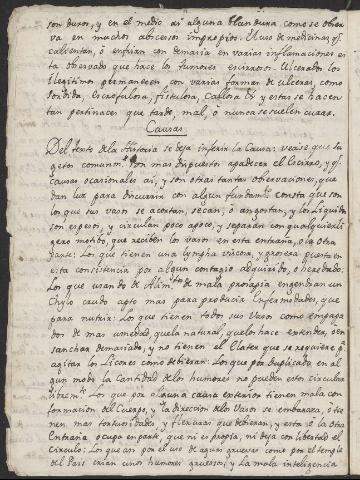 son duros, y en el medio ai alguna blandura como se obser-
va en muchos abscesos impropios. El uso de medicinas q.e
calientan, ò enfrian con demasia en varias inflamaciones es-
ta observado que hace los tumores escirrosos. Ulcerados los
Ilegitimos permanecen con varias formas de ulceras como
sordida, Escrofulosa, fistulosa, Callosa &c y estas se hacen
tan pertinaces que tarde, mal, ò nunca se suelen curar.
Causas
Del texto de la Historia se deja inferir la Causa: vease que su-
getos comunm.te son mas dispuestos apadecer el Escirro, y q.e
causas ocasionales ai, y son otras tantas observaciones, que
dan luz para discurrir con algun fundam.to consta que son
lo que sus vasos se acortan, secan, ò angostan, y los Liquidos
son espesos, y circulan poco apoco, y separan con qualquier li-
gero motibo, que reciben los vasos en esta entraña, ò la otra
parte: Los que tienen una lympha viscosa, y gruesa puesta en
esta consistencia por algun contagio adquirido, ò heredado:
Los que usando de Alim.tos de mala prosapia engendran un
Chylo crudo apto mas para producir Enfermedades, que
para nutrir: Los que tienen todos sus Vasos como empapa-
dos de mas umedad, quela natural, quelos hace extender, ò en-
sanchar demasiado, y no tienen el Elater que se requiere p.a
agitar los Licores como debieran: Los que por duplicado en al-
gun modo la Cantidad de los humores no pueden estos circular
librem.te Los que por alguna causa exterior tienen mala con-
formacion del Cuerpo, y la direccion de los Vasos se embaraza, ò tie-
nen mas tortuosidades, y flexuras que debieran, y esta ò la otra
Entraña ocupa en parte, que ni es propia, ni deja con libertad el
circulo: Los que asi por el uso de aguas gruesas como por el temple
del Pais crian unos humores gruesos; y la mala inteligencia